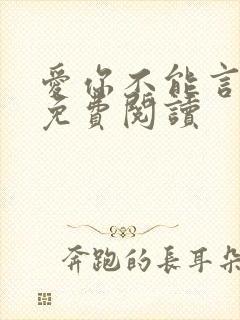 愛你不能言
免費閱讀
奔跑的長耳朵